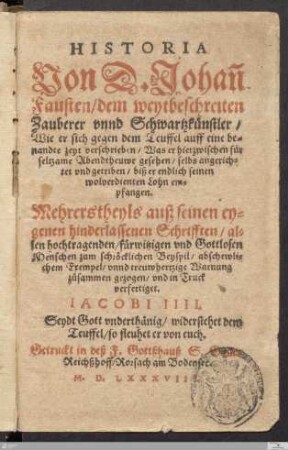 HISTORIA
Von D. Johañ
Fausten/dem weytbeschreiten
Zauberer vnnd Schwartzkünstler/
Wie er sich gegen dem Teuffel auff eine be-
nandte zeyt verschrieben/ Was er hierzwischen für
seltzame Abendtheuwr gesehen/ selbs angerich-
tet vnd getrieben/ biß er endlich seinen
wolverdienten Lohn em-
pfangen.
Mehrerstheyls auß seinen ey-
genen hinderlassenen Schrifften/ al-
len hochtragenden/fürwitzigen vnd Gottlosen
Menschen zum schröcklichen Beyspil/ abschewlis
chem Exempel/ vnnd treuwhertzige Warnung
zusammen gezogen/ vnd in Truck
verfertiget.
IACOBI IIII.
Seydt Gott vnderthänig/ widerstehet dem
Teuffel/ so fleuhet er von euch.
Getruckt in deß F. Gottßhauß S.
Reichßhoff/Rorsach am Bodensee.
M. D. LXXXVIII